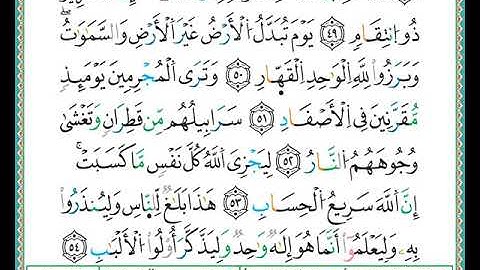 ذُو انتِقَامٍ ۝٤٩ يَوْمَ تُبَدَّلُ الْأَرْضُ غَيْرَ الْأَرْضِ وَالسَّمَٰوَٰتُ ۖ
وَبَرَزُوا۟ لِلَّهِ الْوَٰحِدِ الْقَهَّارِ ۝٥٠ وَتَرَى الْمُجْرِمِينَ يَوْمَئِذٍ
مُّقَرَّنِينَ فِي الْأَصْفَادِ ۝٥١ سَرَابِيلُهُم مِّن قَطِرَانٍ وَتَغْشَىٰ
وُجُوهَهُمُ النَّارُ ۝٥٢ لِيَجْزِيَ اللَّهُ كُلَّ نَفْسٍ مَّا كَسَبَتْ ۚ
إِنَّ اللَّهَ سَرِيعُ الْحِسَابِ ۝٥٣ هَٰذَا بَلَٰغٌ لِّلنَّاسِ وَلِيُنذَرُوا۟
بِهِۦ وَلِيَعْلَمُوٓا۟ أَنَّمَا هُوَ إِلَٰهٌ وَٰحِدٌ وَلِيَذَّكَّرَ أُو۟لُوا۟ الْأَلْبَٰبِ ۝٥٤